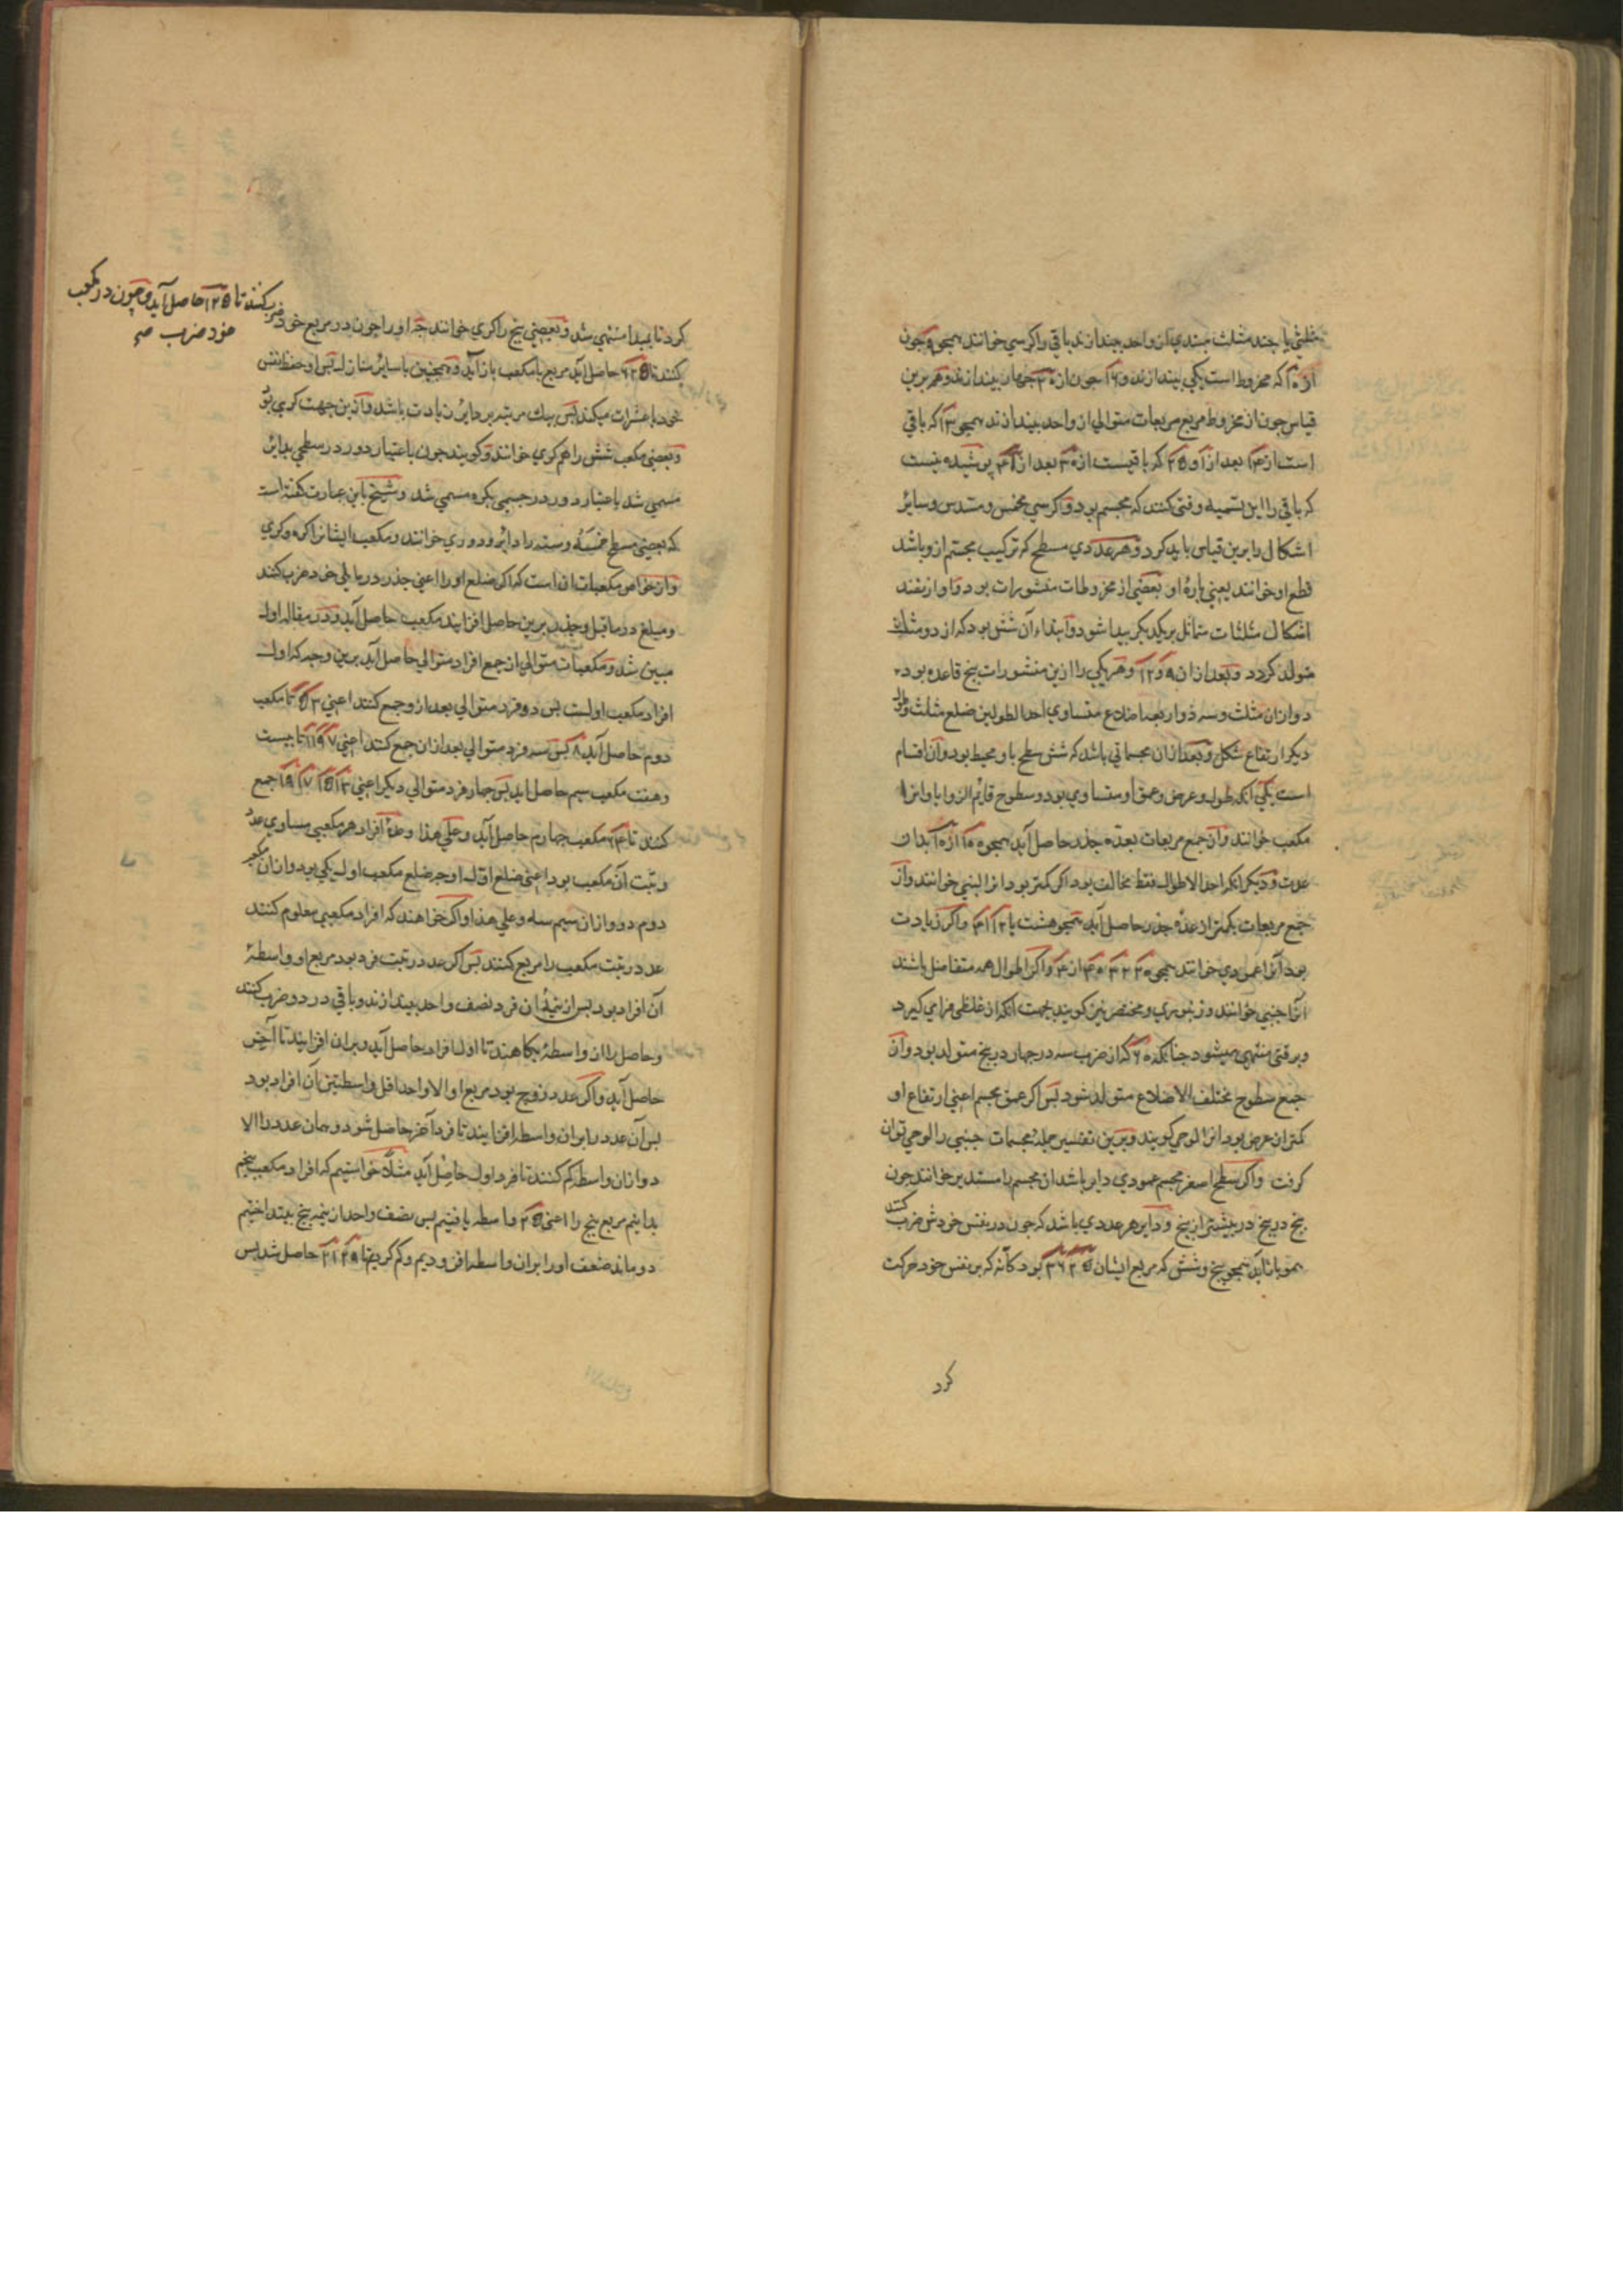 مثلثی یا چند مثلث مبتدی از واحد بیندازند باقی را کرسی خوانند همچو ۹ چون
از ۱۰ که مخروط است یکی بیندازند و ۱۶ چون از ۲۰ چهار بیندازند و هم برین
قیاس چون از مخروط مربع مربعات متوالی از واحد بیندازند همچو ۱۳ که باقی
است از ۱۴ بعد از ۱ و ۲۵ که باقیست از ۳۰ بعد از پوشیده نیست
که باقی را این تسمیه وقتی کنند که مجسم بود و کرسی مخمس و مسدس و سائر
اشکال را برین قیاس باید کرد و هر عددی مسطح که ترکیب مجسم ازو باشد
قطع او خوانند یعنی پارهٔ او و بعضی از مخروطات منشورات بود و او از نضد
اشکال مثلثات متماثل بر یکدیگر پیدا شود و ابتداء آن شش بود که از دو مثلث
متولد گردد و بعد ازان ۹ و ۱۲ و هر یکی را ازین منشورات پنج قاعده بود
دو ازان مثلث و سه ذو اربعة اضلاع متساوی احد الطولین ضلع مثلث و طول
دیگر ارتفاع شکل و بعد ازان مجسماتی باشد که شش سطح باو محیط بود و آن اقسام
است یکی آنکه طول و عرض و عمق او متساوی بود و سطوح قائم الزوایا و انرا
مکعب خوانند و از جمع مربعات بعدهٔ جذر حاصل آید همچو
عدت و دیگر آنکه احد الاطوال فقط مخالف بود اگر کمتر بود انرا لبنی خوانند و از
جمع مربعات بکمتر از عدهٔ جذر حاصل آید همچو هشت یا ۱۲ و اگر زیادت
بود آنرا عمودی خوانند همچو و اگر اطوال همه متفاضل باشند
انرا جنبی خوانند و زنبوری و مختصرین گویند بجهت آنکه از غلظی فرا می گیرد
و برقتی منتهی میشود چنانکه ۶۰ که از ضرب سه در چهار در پنج متولد بود و از
جمع سطوح مختلف الاضلاع متولد شود پس اگر عمق مجسم اعنی ارتفاع او
کمتر از عرض بود انرا لوحی گویند و برین تفسیر جمله مجسمات جنبی را لوحی توان
گرفت و اگر سطح اصغر مجسم عمودی دایر باشد ان مجسم را مستدیر خوانند چون
پنج در پنج در بیشتر از پنج و دایر هر عددی باشد که چون در نفس خودش ضرب کنند
همو باز آید همچو پنج و شش که مربع ایشان ۲۵ ۳۶ بود کأنه که بر نفس خود حرکت
کرد
ضرب کنند تا ۱۲۵ حاصل آید و چون در مکعب
خود ضرب صح
کرد تا بمبدا منتهی شد و بعضی پنج را کری خوانند چه او را چون در مربع خود
کنند تا ۶۲۵ حاصل آید مربع یا مکعب باز آید و همچنین با سایر منازل پس او حفظ نفس
خود با عشرات میکند پس بیک مرتبه بر دایر زیادت باشد و ازین جهت کری بود
و بعضی مکعب شش را هم کری خوانند و گویند چون باعتبار دور در سطحی بدایر
مسمی شد باعتبار دور در جسمی بکره مسمی شد و شیخ باین عبارت گفته است
که بعضی مسطح خمسه و سته را دایر و دوری خوانند و مکعب ایشانرا کره و کری
و از خواص مکعبات ان است که اگر ضلع او را اعنی جذر در ما یلی خود ضرب کنند
و مبلغ در ما قبل و جذر برین حاصل افزایند مکعب حاصل آید و در مقاله اول
مبین شد و مکعبات متوالی از جمع افراد متوالی حاصل آید برین وجه که اول
افراد مکعب اولست پس دو فرد متوالی بعد ازو جمع کنند اعنی ۳ ۵ تا مکعب
دوم حاصل آید ۸ پس سه فرد متوالی بعد ازان جمع کنند اعنی ۷ ۹ ۱۱ تا بیست
و هفت مکعب سیم حاصل اید پس چهار فرد متوالی دیگر اعنی ۱۳ ۱۵ ۱۷ ۱۹ جمع
کنند تا ۶۴ مکعب چهارم حاصل آید و علی هذا و عدهٔ افراد هر مکعبی مساوی عدد
رتبت آن مکعب بود اعنی ضلع او چه ضلع مکعب اول یکی بود و ازان مکعب
دوم دو و ازان سیم سه و علی هذا و اگر خواهند که افراد مکعبی معلوم کنند
عدد رتبت مکعب را مربع کنند پس اگر عدد رتبت فرد بود مربع او واسطهٔ
آن افراد بود پس از نیمهٔ ان فرد نصف واحد بیندازند و باقی در دو ضرب کنند
و حاصل را ازان واسطه بکاهند تا اول افراد حاصل آید و بران افزایند تا آخر
حاصل آید و اگر عدد زوج بود مربع او الا واحد اقل واسطتین آن افراد بود
پس آن عدد را بران واسطه افزایند تا فرد آخر حاصل شود و همان عدد را الا
دو ازان واسطه کم کنند تا فرد اول حاصل آید مثلا خواستیم که افراد مکعب پنجم
بدانیم مربع پنج را اعنی ۲۵ واسطه یافتیم پس نصف واحد از نیمه پنج بینداختیم
دو ماند ضعف اورا بران واسطه افزودیم و کم کردیم تا ۲۹ ۲۱ حاصل شد پس